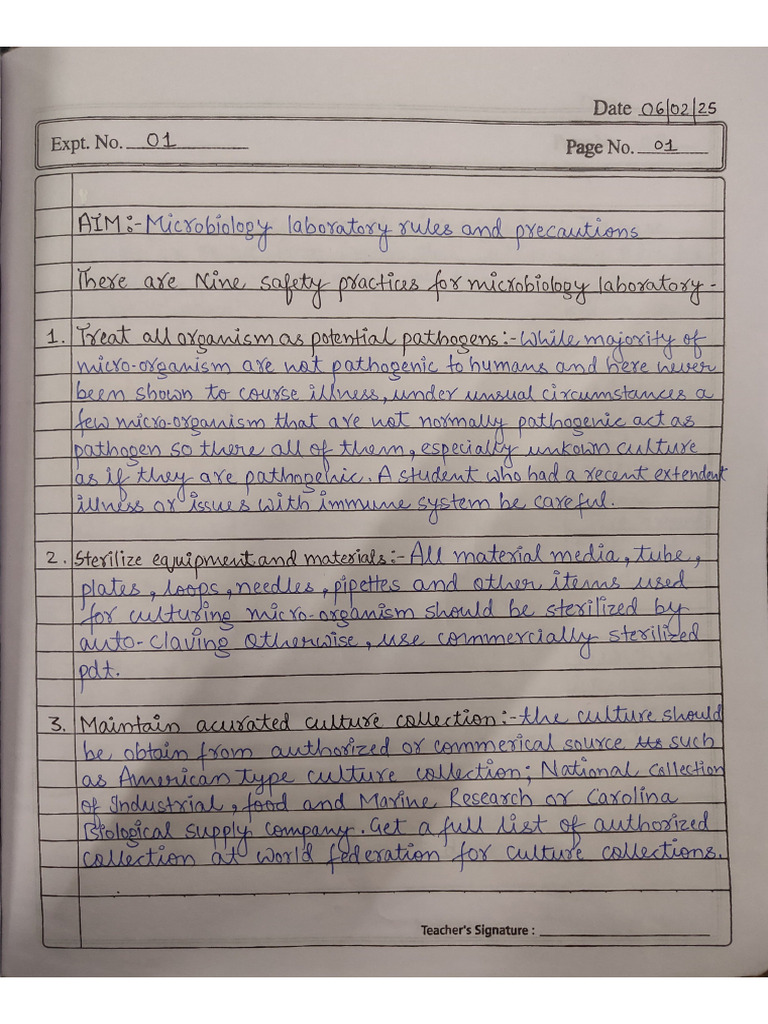 Date 06/02/25
Expt. No. 01
Page No. 01
AIM:- Microbiology laboratory rules and precautions
There are Nine safety practices for microbiology laboratory -
1. Treat all organism as potential pathogens:- While majority of
micro-organism are not pathogenic to humans and here never
been shown to course illness, under unsual circumstances a
few micro-organism that are not normally pathogenic act as
pathogen so there all of them, especially unkown culture
as if they are pathogenic. A student who had a recent extendent
illness or issues with immune system be careful.
2. Sterilize equipment and materials:- All material media, tube,
plates, loops, needles, pipettes and other items used
for culturing micro-organism should be sterilized by
auto-claving otherwise, use commercially sterilized
pdt.
3. Maintain acurated culture collection:- the culture should
be obtain from authorized or commerical source such
as American type culture collection; National collection
of Industrial, food and Marine Research or Carolina
Biological supply company. Get a full list of authorized
collection at world federation for culture collections.
Teacher's Signature :